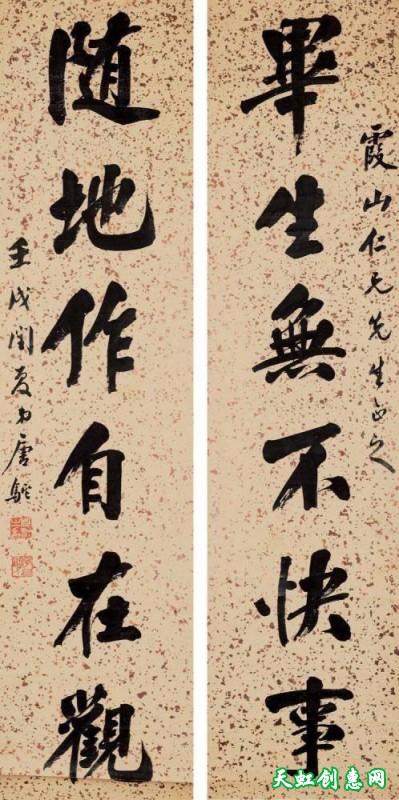 霞山仁兄先生正之
畢生無不快事
随地作自在觀
壬戌閏夏弟唐駝
天虹创惠网